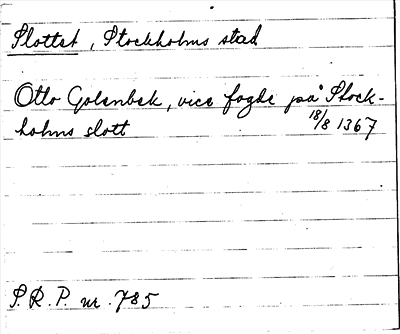 Slottet, Stockholms stad
Otto Golenbek, vice fogde på Stock-
holms slott 18/8 1367
S.R.P. nr. 785